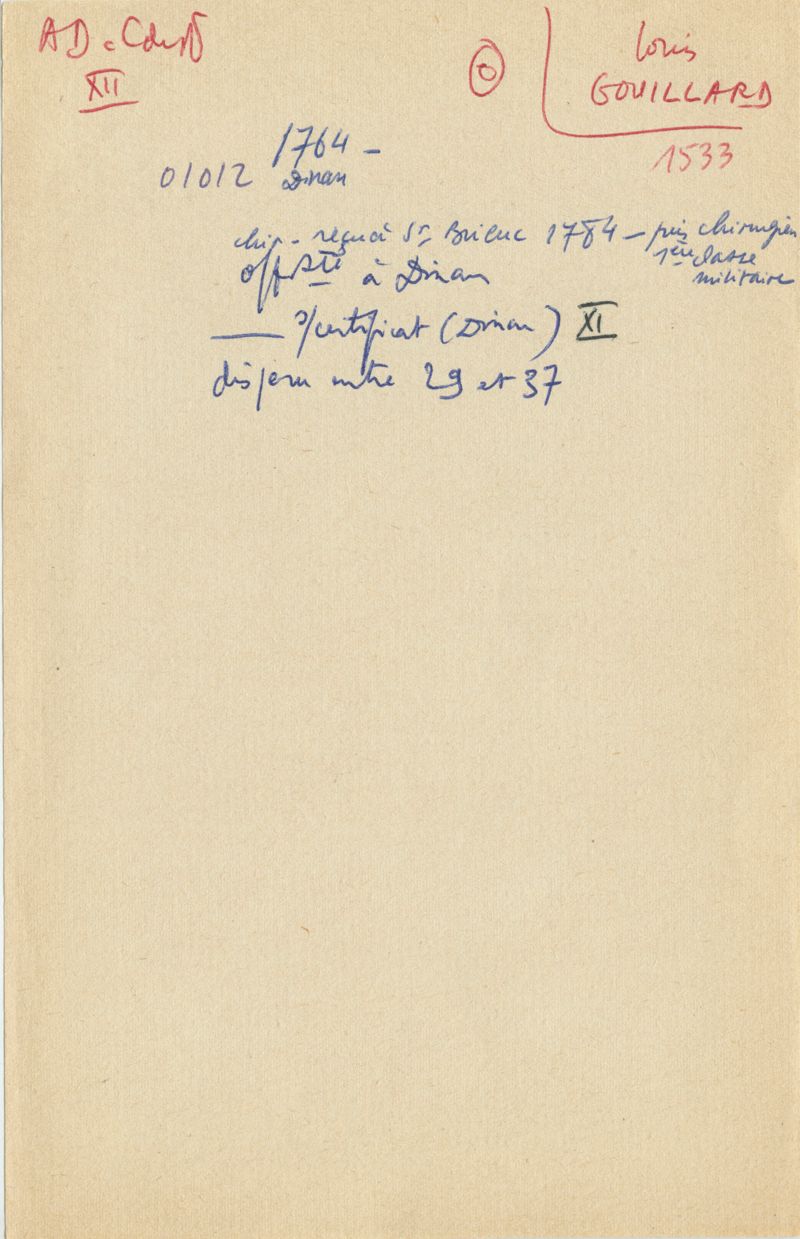 AD. CduN
XII
Louis
GOUILLARD
1533
1764 -
0/0/2 Dinan
chir - reçu à St Brieuc 1784 - puis chirurgien
1ère classe
militaire
off Sté à Dinan
certificat (Dinan) XI
disparu entre 29 et 37